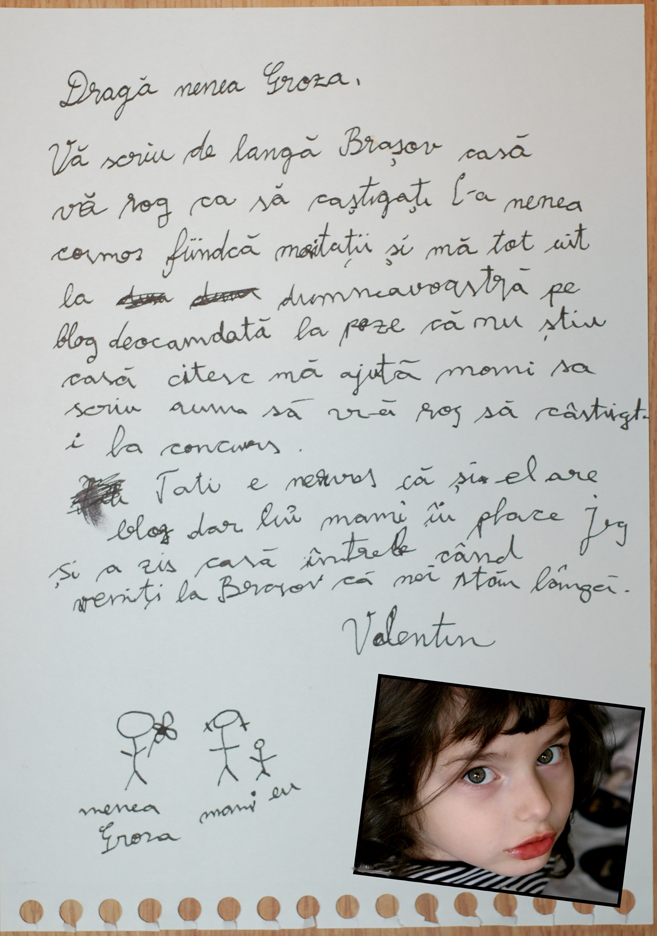 Dragă nenea Groza,
Vă scriu de langă Brașov casă
vă rog ca să caștigați l-a nenea
cosmos fiindcă meitații și mă tot uit
la dumneavoastră pe
blog deocamdată la poze că nu știu
casă citesc mă ajută mami sa
scriu auma să vr-ă rog să câstigt-
i la concurs.
Tati e nervos că și-el are
blog dar lui mami îi place jeg
și a zis casă întreb când
veniți la Brașov că noi stăm lângă.
Valentin
nenea
Groza
mami
eu